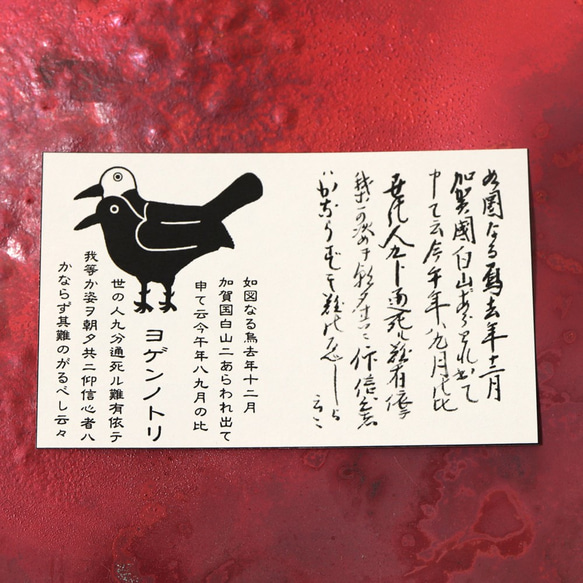 如圖なる鳥去年十二月
加賀國白山ニあらわれ出て
申て云今午年八九月の比
世の人九分通死ル難有依テ
我等か姿ヲ朝夕共ニ仰信心者
ハかならず其難のがるべし
云々
如図なる鳥去年十二月
加賀国白山ニあらわれ出て
申て云今午年八九月の比
ヨゲンノトリ
世の人九分通死ル難有依テ
我等か姿ヲ朝夕共ニ仰信心者ハ
かならず其難のがるべし云々